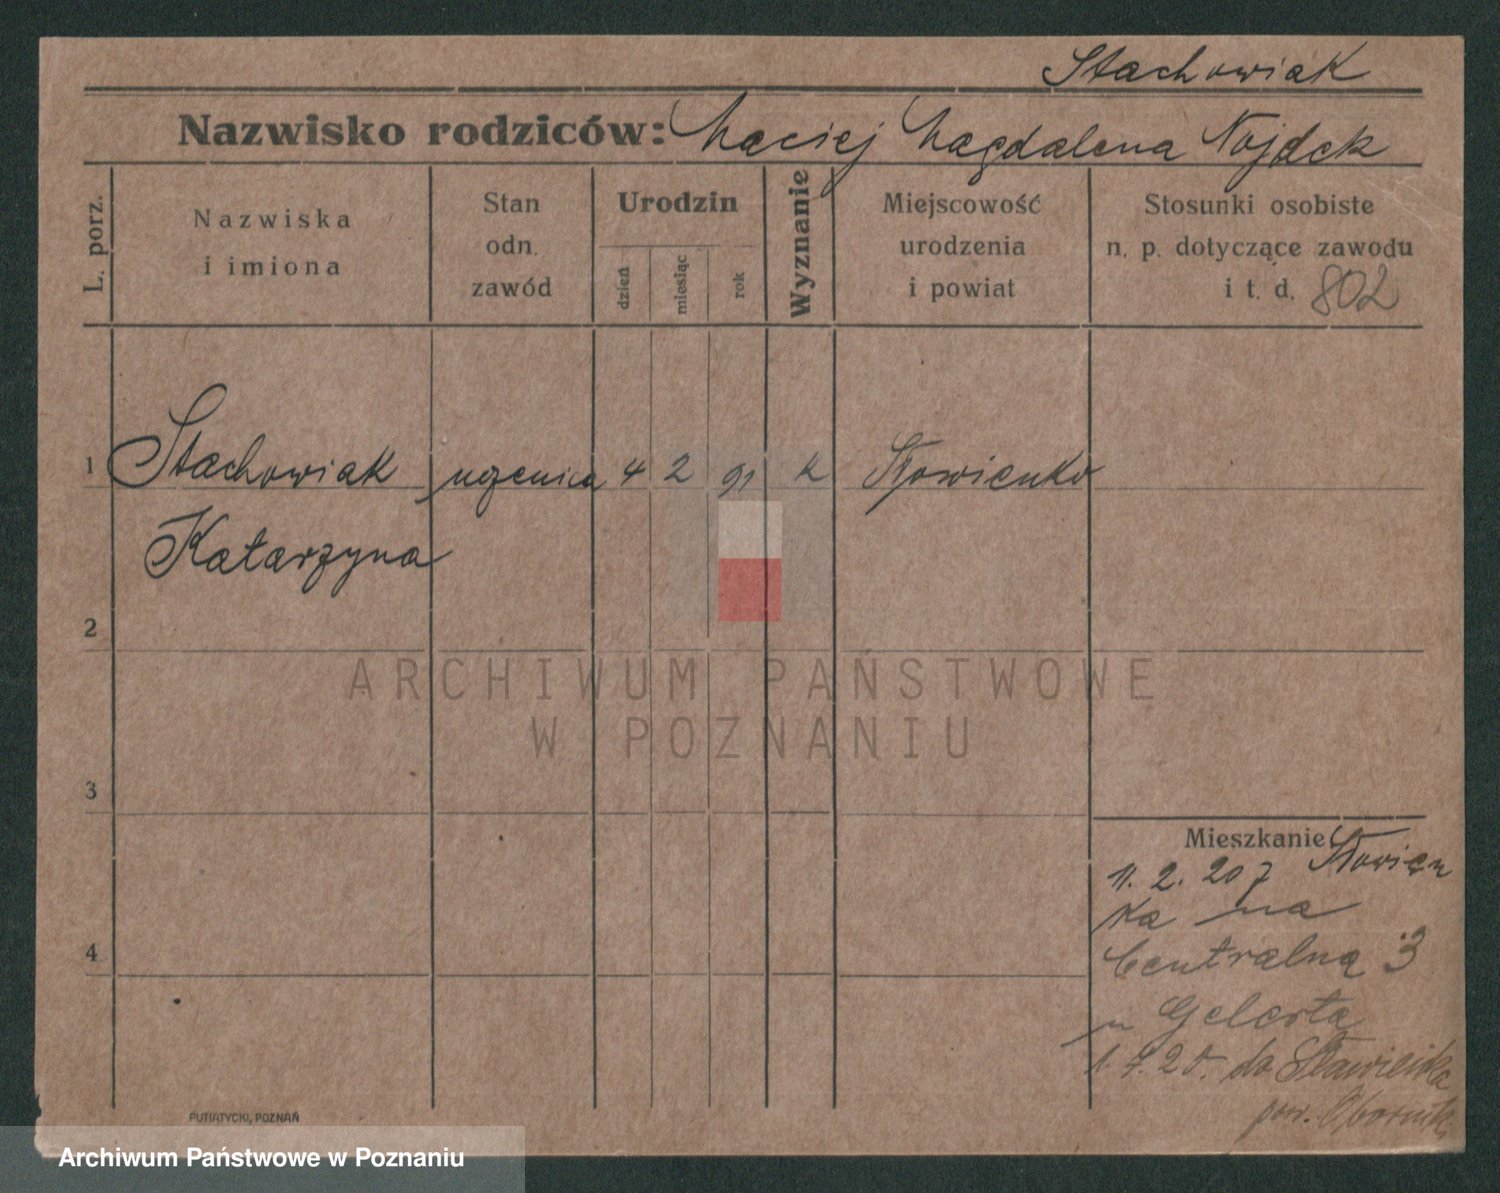 Stachowiak
Nazwisko rodziców: Maciej Magdalena Nojdek
L. porz.
Nazwiska
i imiona
Stan
odn.
zawód
Urodzin
dzień
miesiąc
rok
Wyznanie
Miejscowość
urodzenia
i powiat
Stosunki osobiste
n. p. dotyczące zawodu
i t. d. 802
1 Stachowiak 4 2 91 k Słowienko
Katarzyna
2
ARCHIWUM PAŃSTWOWE
W POZNANIU
3
Mieszkanie
11. 2. 20 z Słowien
ka na
Centralną 3
u Gelerta
1. 7. 20. do Sławienka
pow. Obornik.
4
PUTIATYCKI, POZNAŃ
Archiwum Państwowe w Poznaniu